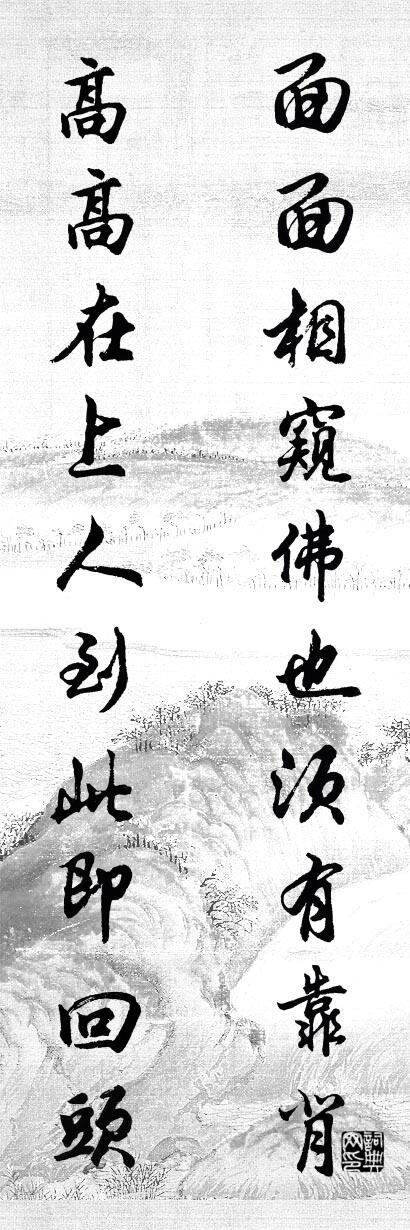 面面相窺佛也須有靠背
高高在上人到此即回頭
詞典網印